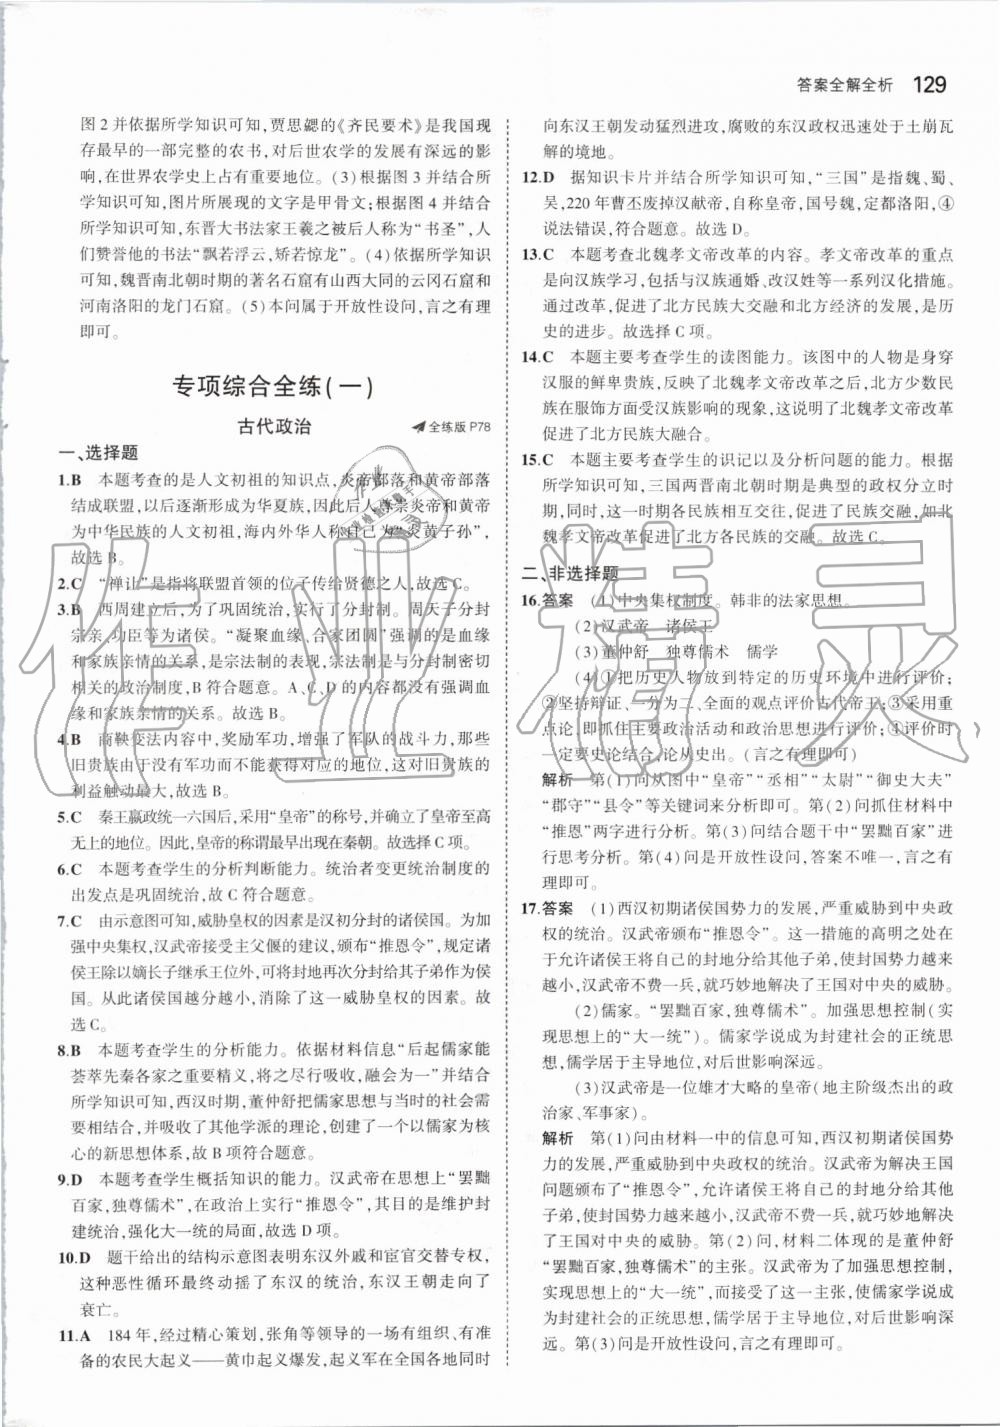 答案全解全析 129
图2并依据所学知识可知,贾思勰的《齐民要术》是我国现
存最早的一部完整的农书,对后世农学的发展有深远的影
响,在世界农学史上占有重要地位。(3)根据图3并结合所
学知识可知,图片所展现的文字是甲骨文;根据图4并结合
所学知识可知,东晋大书法家王羲之被后人称为“书圣”,人
们赞誉他的书法“飘若浮云,矫若惊龙”。(4)依据所学知识
可知,北魏晋南北朝时期的著名石窟有山西大同的云冈石窟和
河南洛阳的龙门石窟。(5)本问属于开放性设问,言之有理
即可。
专项综合全练(一)
古代政治 全练版P78
一、选择题
1.B 本题考查的是人文初祖的知识点,炎帝部落和黄帝部落
结成联盟,以后逐渐形成为华夏族,因此后人尊崇炎帝和黄帝
为中华民族的人文初祖,海内外华人称自己为“炎黄子孙”,
故选B。
2.C “禅让”是指将联盟首领的位子传给贤德之人,故选C。
3.B 西周建立后,为了巩固统治,实行了分封制。周天子分封
宗亲、功臣等为诸侯。“凝聚血缘、合家团圆”强调的是血缘
和家族亲情的关系,是宗法制的表现,宗法制是与分封制密切
相关的政治制度,B符合题意。A、C、D都没有强调血
缘和家族亲情的关系。故选B。
4.B 商鞅变法内容中,奖励军功,增强了军队的战斗力,那些
旧贵族由于没有军功而不能获得对应的地位,这对旧贵族的
利益触动最大,故选B。
5.C 秦王嬴政统一六国后,采用“皇帝”的称号,并确立了皇帝至高
无上的地位。由此可知,皇帝的称谓最早出现在秦朝。故选择C项。
6.C 本题考查学生的分析判断能力。统治者变更统治制度的
出发点是巩固统治,故C符合题意。
7.C 由示意图可知,威胁皇权的因素是汉初分封的诸侯国。为加
强中央集权,汉武帝接受主父偃的建议,颁布“推恩令”,规定诸
侯王除以嫡长子继承王位外,可将封地再次分封给子弟作为侯
国。从此诸侯国越分越小,消除了这一威胁皇权的因素。故
选C。
8.B 本题考查学生的分析能力。依据材料信息“后起儒家能
荟萃先秦各家之重要精义,将之尽行吸收,融会为一”并结合
所学知识可知,西汉时期,董仲舒把儒家思想与当时的社会需
要相结合,并吸收了其他学派的理论,创建了一个以儒学为核
心的新的思想体系,故B项符合题意。
9.D 本题考查学生概括知识的能力。汉武帝在思想上“罢黜
百家,独尊儒术”,在政治上实行“推恩令”,其目的是维护封
建统治,强化大一统的局面,故选D项。
10.D 题干给出的结构示意图表明东汉外戚和宦官交替专权,
这种恶性循环最终动摇了东汉的统治,东汉王朝走向了
衰亡。
11.A 184年,经过精心策划,张角等领导的一场有组织、有准
备的农民大起义——黄巾起义爆发,起义军在全国各地同时
向东汉王朝发动猛烈进攻,腐败的东汉政权迅速处于土崩瓦
解的境地。
12.D 据知识卡片并结合所学知识可知,“三国”是指魏、蜀、
吴,220年曹丕废掉汉献帝,自称皇帝,国号魏,定都洛阳,④
说法错误,符合题意。故选D。
13.C 本题考查北魏孝文帝改革的内容。孝文帝改革的重点
是向汉族学习,包括与汉族通婚、改汉姓等一系列汉化措施。
通过改革,促进了北方民族大交融和北方经济的发展,是历
史的进步。故选择C项。
14.C 本题主要考查学生的读图能力。该图中的人物是身穿
汉服的鲜卑贵族,反映了北魏孝文帝改革之后,北方少数民
族在服饰方面受汉族影响的现象,这说明了北魏孝文帝改革
促进了北方民族大融合。
15.C 本题主要考查学生的识记以及分析问题的能力。根据
所学知识可知,三国两晋南北朝时期是典型的政权分立时
期,同时,这一时期各民族相互交往,促进了民族交融,如北
魏孝文帝改革促进了北方各民族的交融。故选C。
二、非选择题
16.答案 (1)中央集权制度。韩非的法家思想。
(2)汉武帝 诸侯王
(3)董仲舒 独尊儒术 儒学
(4)①把历史人物放到特定的历史环境中进行评价;
②坚持辩证、一分为二、全面的观点评价古代帝王;③采用重
点论,即抓住主要政治活动和政治思想进行评价;④评价时
一定要史论结合,论从史出。(言之有理即可)
解析 第(1)问从图中“皇帝”“丞相”“太尉”“御史大夫”
“郡守”“县令”等关键词来分析即可。第(2)问抓住材料中
“推恩”两字进行分析。第(3)问结合题干中“罢黜百家”进
行思考分析。第(4)问是开放性设问,答案不唯一,言之有
理即可。
17.答案 (1)西汉初期诸侯国势力的发展,严重威胁到中央政
权的统治。汉武帝颁布“推恩令”。这一措施的高明之处在
于允许诸侯王将自己的封地分给其他子弟,汉武帝不费一
兵一卒,就巧妙地解决了王国对中央的威胁。
(2)儒家。“罢黜百家,独尊儒术”。加强思想控制(实
现思想上的“大一统”)。儒家学说成为封建社会的正统思
想,儒学居于主导地位,对后世影响深远。
(3)汉武帝是一位雄才大略的皇帝(地主阶级杰出的政
治家、军事家)。
解析 第(1)问由材料一中的信息可知,西汉初期诸侯国势
力的发展,严重威胁到中央政权的统治。汉武帝为解决王国
问题颁布了“推恩令”,允许诸侯王将自己的封地分给其他
子弟,汉武帝不费一兵一卒,就巧妙地解决
了王国对中央的威胁。第(2)问,材料二体现的是董仲舒
“罢黜百家,独尊儒术”的主张。汉武帝为了加强思想控制,
实现思想上的“大一统”,而接受了这一主张,使儒家学说成
为封建社会的正统思想,儒学居于主导地位,对后世影响深
远。第(3)问是开放性设问,言之有理即可。
作业精灵